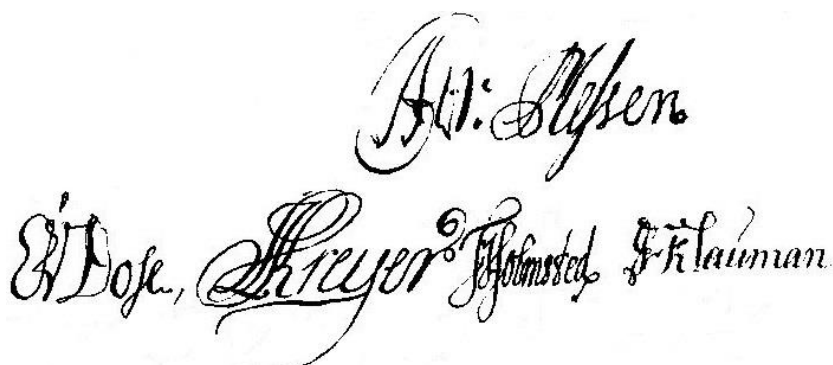 AW: Plessen
EvDose, Kreyer Holmsted Klauman